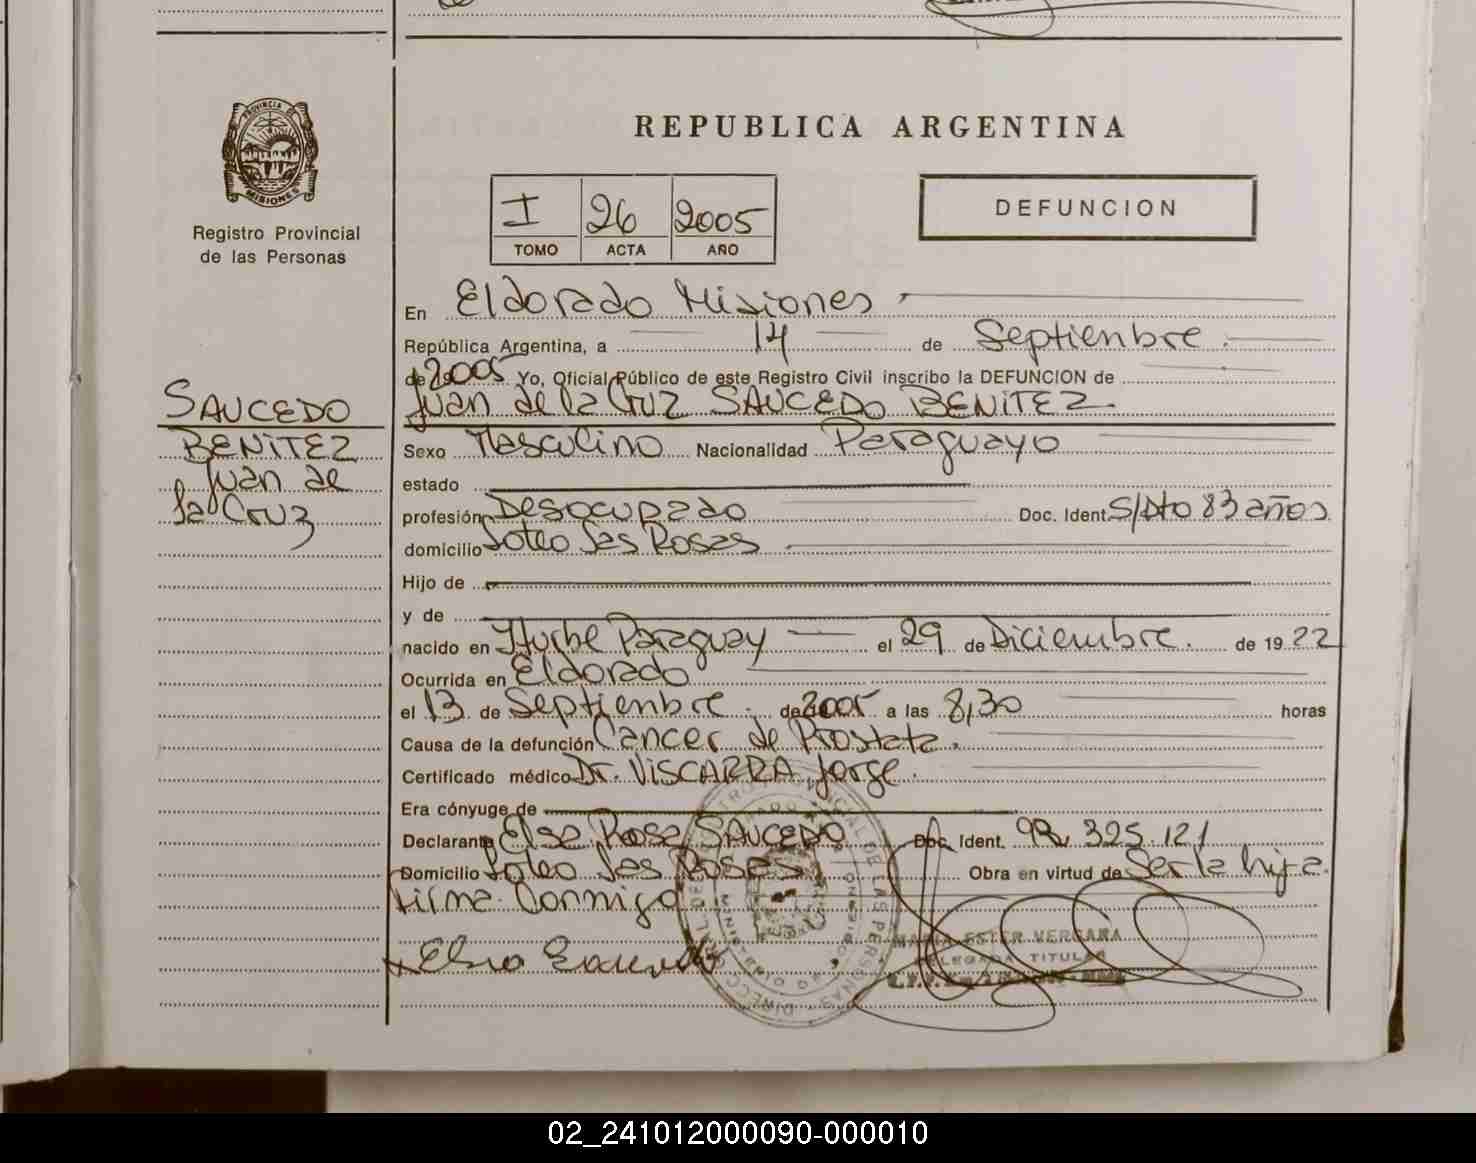 REPUBLICA ARGENTINA
PROVINCIA DE
MISIONES
Registro Provincial
de las Personas
I 26 2005
TOMO ACTA AÑO
DEFUNCION
En Eldorado Misiones
República Argentina, a 14 de Septiembre
de 2005 Yo, Oficial Público de este Registro Civil inscribo la DEFUNCION de
Juan de la Cruz SAUCEDO BENITEZ
SAUCEDO
BENITEZ
Juan de
la Cruz
Sexo Masculino Nacionalidad Paraguayo
estado
profesión Desocupado Doc. Ident. S/Dto 83 años
domicilio Loteo Las Rosas
Hijo de
y de
nacido en Yturbe Paraguay el 29 de Diciembre de 1922
Ocurrida en Eldorado
el 13 de Septiembre de 2005 a las 8,30 horas
Causa de la defunción Cancer de Prostata.
Certificado médico Dr. VISCARRA Jorge.
Era cónyuge de
Declarante Elsa Rosa SAUCEDO Doc. Ident. 92.325.121
Domicilio Loteo Las Rosas Obra en virtud de Ser la hija.
Firma Conmigo
Elsa Saucedo
MARIA ESTER VERGARA
DELEGADA TITULAR
02_241012000090-000010